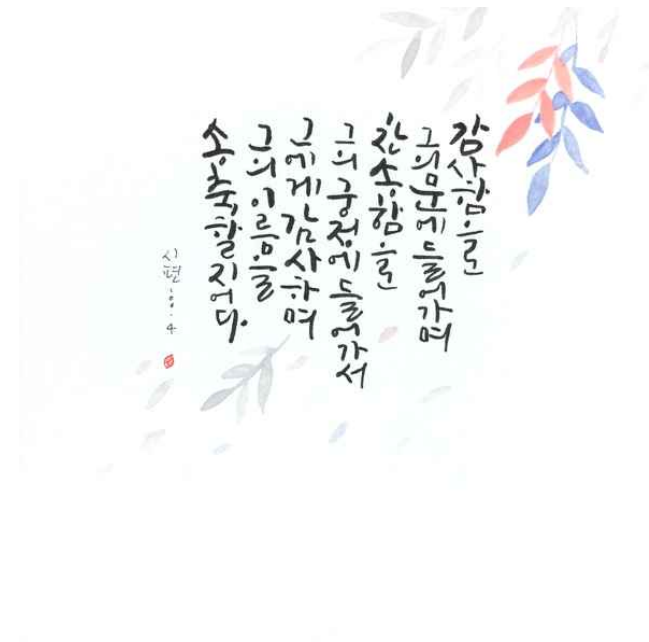 감사함으로
그의 문에 들어가며
찬송함으로
그의 궁정에 들어가서
그에게 감사하며
그의 이름을
송축할지어다.
시편 100. 4